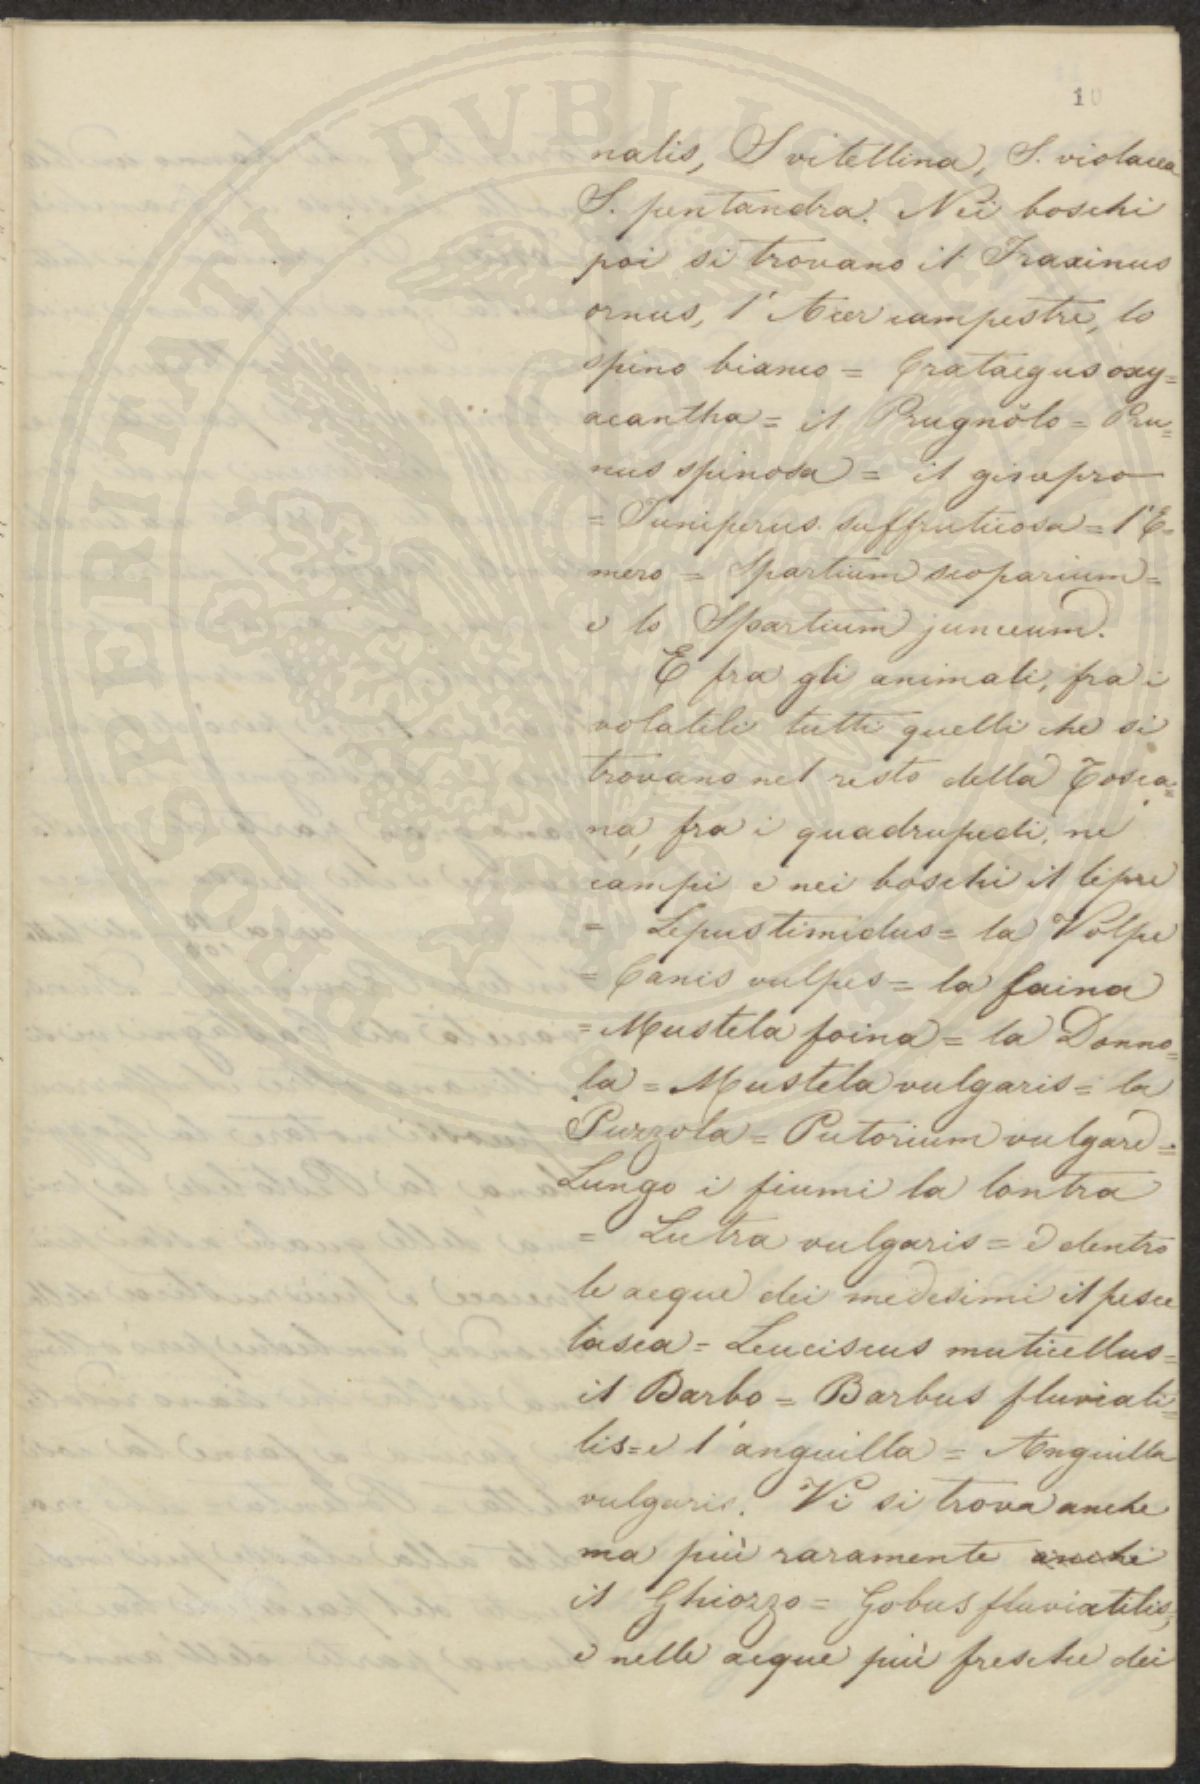 10
nalis, S vitellina, S. violacea
S. pentandra. Nei boschi
poi si trovano il Fraxinus
ornus, l'Acer campestre, lo
spino bianco = Crataegus oxy=
acantha = il Prugnólo = Pru=
nus spinosa = il ginepro
= Juniperus suffruticosa = l'E=
mero = Spartium scoparium =
e lo Spartium junceum.
E fra gli animali, fra i
volatili tutti quelli che si
trovano nel resto della Tosca=
na, fra i quadrupedi, ne'
campi e nei boschi il lepre
= Lepus timidus = la Volpe
= Canis vulpes = la faina
= Mustela foina = la Donno=
la = Mustela vulgaris = la
Puzzola = Putorium vulgare =
Lungo i fiumi la lontra
= Lutra vulgaris = e dentro
le acque dei medesimi il pesce
lasca = Leuciscus muticellus =
il Barbo = Barbus fluviati=
lis = e l'anguilla = Anguilla
vulgaris. Vi si trova anche
ma più raramente anche
il Ghiozzo = Gobus fluviatilis,
e nelle acque più fresche dei
PROSPERITATI PVBLICAE